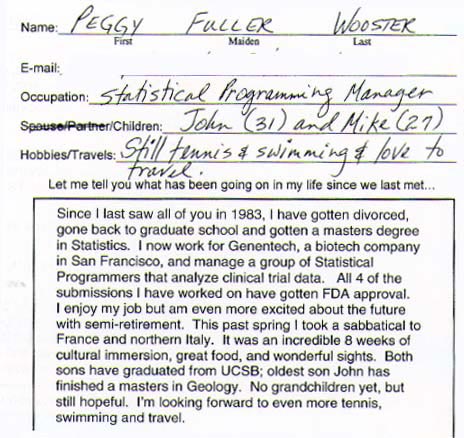 Name: PEGGY FULLER WOOSTER
First Maiden Last
E-mail:
Occupation: Statistical Programming Manager
Spouse/Partner/Children: John (31) and Mike (27)
Hobbies/Travels: Still tennis & swimming & love to
travel.
Let me tell you what has been going on in my life since we last met...
Since I last saw all of you in 1983, I have gotten divorced,
gone back to graduate school and gotten a masters degree
in Statistics. I now work for Genentech, a biotech company
in San Francisco, and manage a group of Statistical
Programmers that analyze clinical trial data. All 4 of the
submissions I have worked on have gotten FDA approval.
I enjoy my job but am even more excited about the future
with semi-retirement. This past spring I took a sabbatical to
France and northern Italy. It was an incredible 8 weeks of
cultural immersion, great food, and wonderful sights. Both
sons have graduated from UCSB; oldest son John has
finished a masters in Geology. No grandchildren yet, but
still hopeful. I'm looking forward to even more tennis,
swimming and travel.